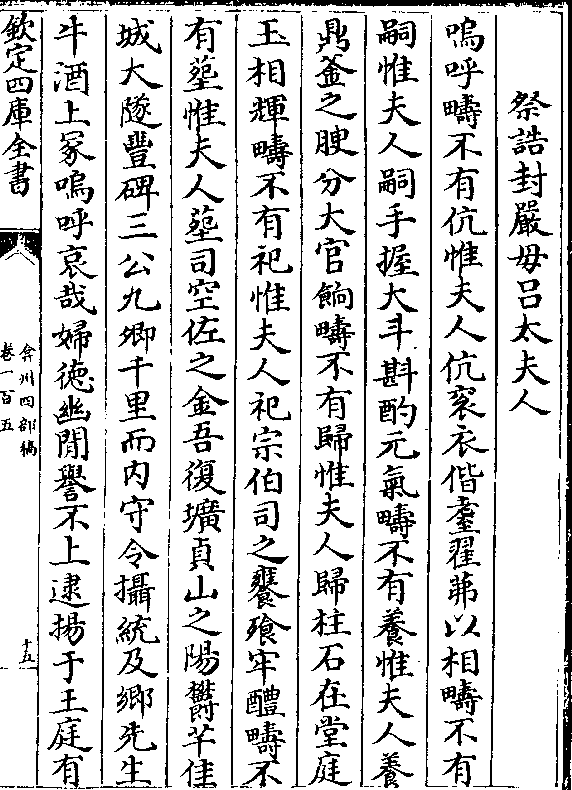 祭誥封嚴母呂太夫人
嗚呼疇不有伉惟夫人伉衮衣偕耋翟茀以相疇不有
嗣惟夫人嗣手握大斗斟酌元氣疇不有養惟夫人養
鼎釜之腴分大官餉疇不有歸惟夫人歸柱石在堂庭
玉相輝疇不有祀惟夫人祀宗伯司之饔飱牢醴疇不
有塟惟夫人塟司空佐之金吾復壙貞山之陽欝芊佳
城大隧豐碑三公九卿千里而内守令攝統及鄉先生
牛酒上冢嗚呼哀哉婦徳幽閒譽不上逮揚于王庭有
欽定四庫全書
弇州四部稿
卷一百五
十五